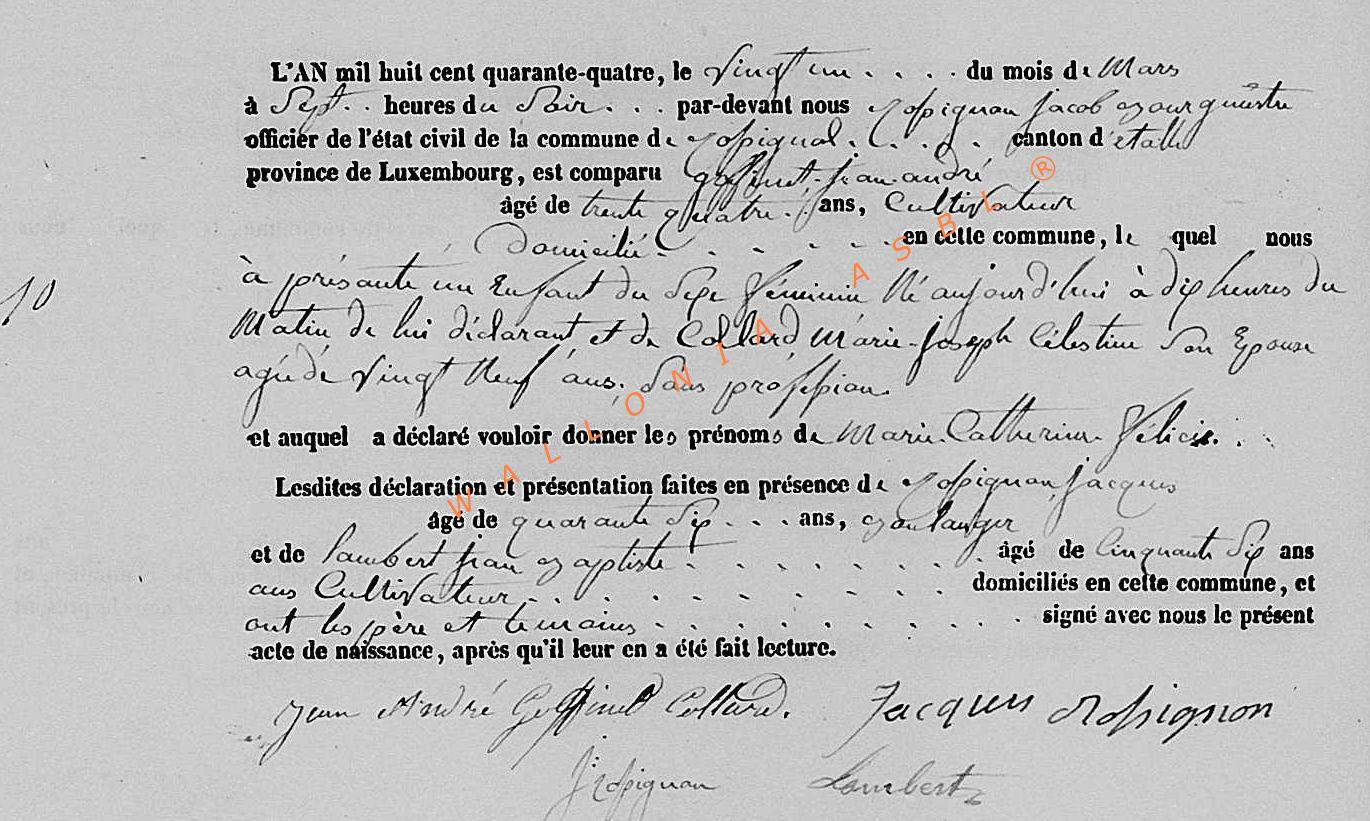 L'AN mil huit cent quarante-quatre, le vingt un . . . . du mois de Mars
à Sept . . heures du Soir . . . par-devant nous Rossignon jacob Bourguestre
officier de l'état civil de la commune de Rossignol . . . . . canton d'étalle
province de Luxembourg, est comparu goffinet, jean-andré
âgé de trente quatre . . ans, Cultivateur
Domicilié . . . . . . en cette commune, le quel nous
à présenté un Enfant du Sexe féminin Né aujourd'hui à dix heures du
Matin de lui déclarant, et de Collard, Marie-joseph Célestine Son Epouse
agée de vingt Neuf ans, Sans profession.
et auquel a déclaré vouloir donner les prénoms de Marie-Catherine-félicie. .
Lesdites déclaration et présentation faites en présence de Rossignon, jacques
âgé de quarante Six . . . ans, Boulanger
10
et de lambert jean Baptiste . . . . . . . . . âgé de Cinquante Six ans
ans Cultivateur . . . . . . . . . . . domiciliés en cette commune, et
ont les père et temoins . . . . . . . . . . signé avec nous le présent
acte de naissance, après qu'il leur en a été fait lecture.
Jean André Goffinet Collard. Jacques Rossignon
J Rossignon Lambert
WALLONIA ASBL ®